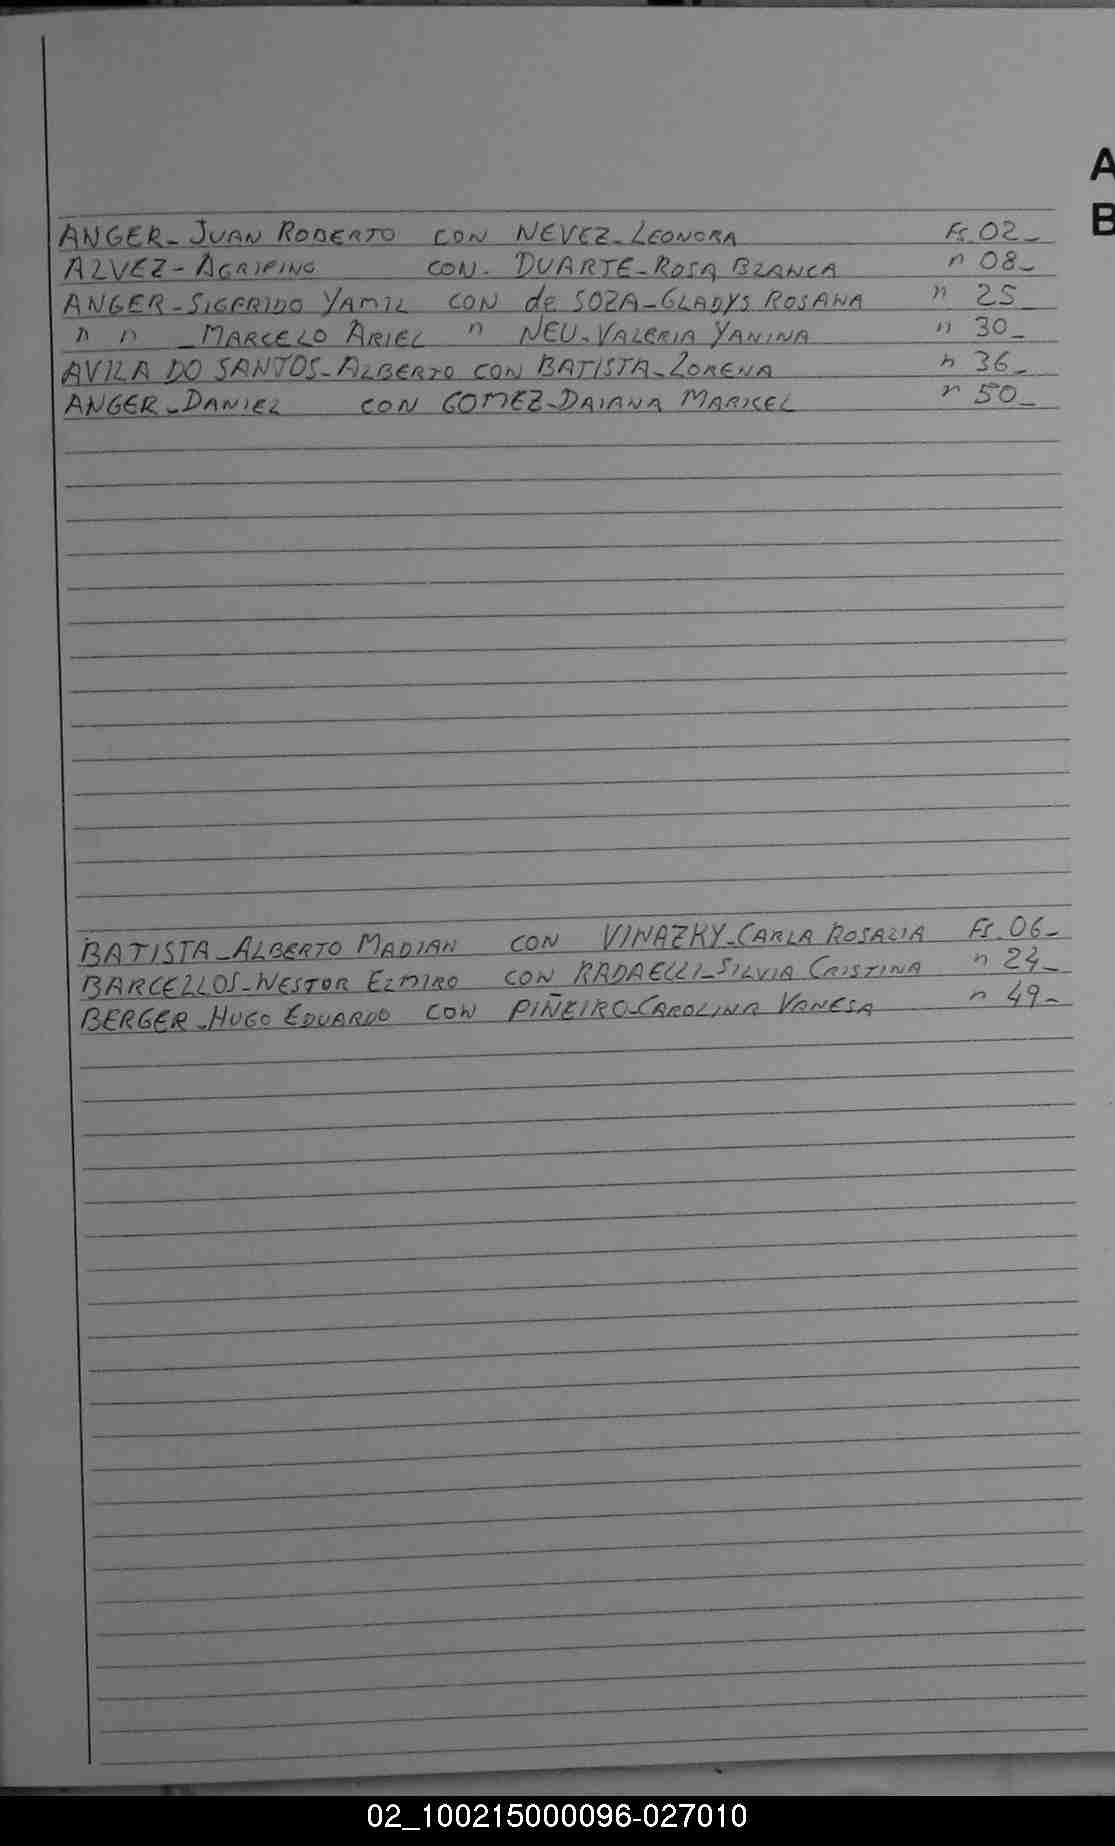 A
B
ANGER_ JUAN ROBERTO CON NEVEZ_LEONORA Fs.02_
ALVEZ-AGRIPINO CON. DUARTE-ROSA BLANCA " 08_
ANGER-SIGFRIDO YAMIL CON de SOZA-GLADYS ROSANA " 25_
" " _MARCELO ARIEL " NEU-VALERIA YANINA " 30_
AVILA DO SANTOS-ALBERTO CON BATISTA-LORENA " 36_
ANGER-DANIEL CON GOMEZ-DAIANA MARICEL " 50_
BATISTA-ALBERTO MADIAN CON VINAZKY-CARLA ROSALIA Fs.06_
BARCELLOS-NESTOR ELMIRO CON RADAELLI-SILVIA CRISTINA " 24_
BERGER-HUGO EDUARDO CON PIÑEIRO-CAROLINA VANESA " 49_
02_100215000096-027010